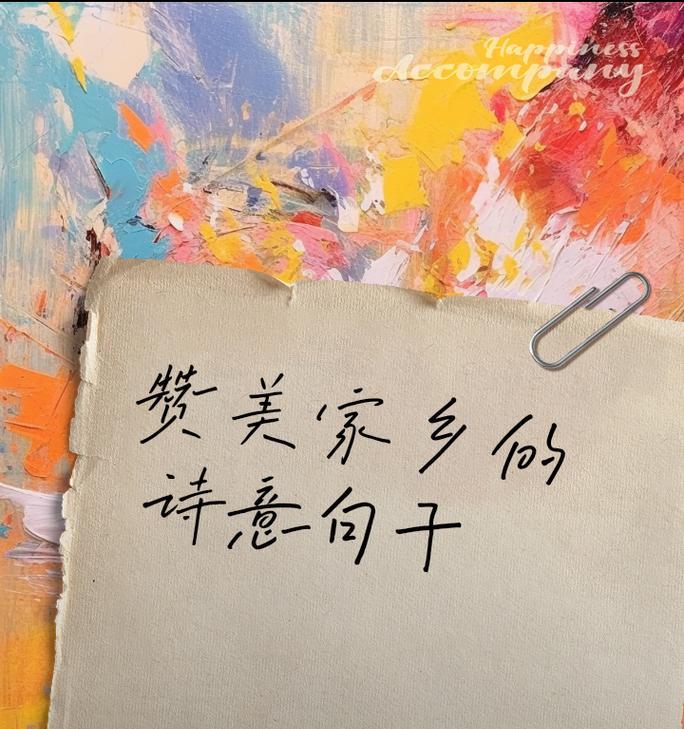 Happiness
Accompany
赞美家乡的
诗意句子